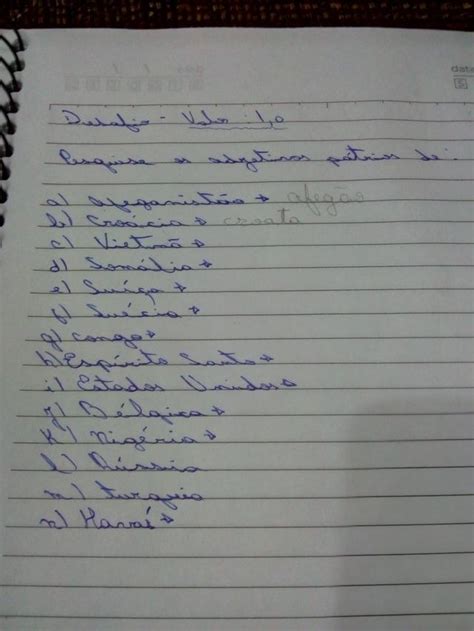 data
Desafio - Valor: 1,0
Pesquise os adjetivos pátrios de:
a) Afeganistão → afegão
b) Croácia → croata
c) Vietnã →
d) Somália →
e) Suíça →
f) Suécia →
g) Congo →
h) Espírito Santo →
i) Estados Unidos →
j) Bélgica →
k) Nigéria →
l) Rússia
m) Turquia
n) Havaí →